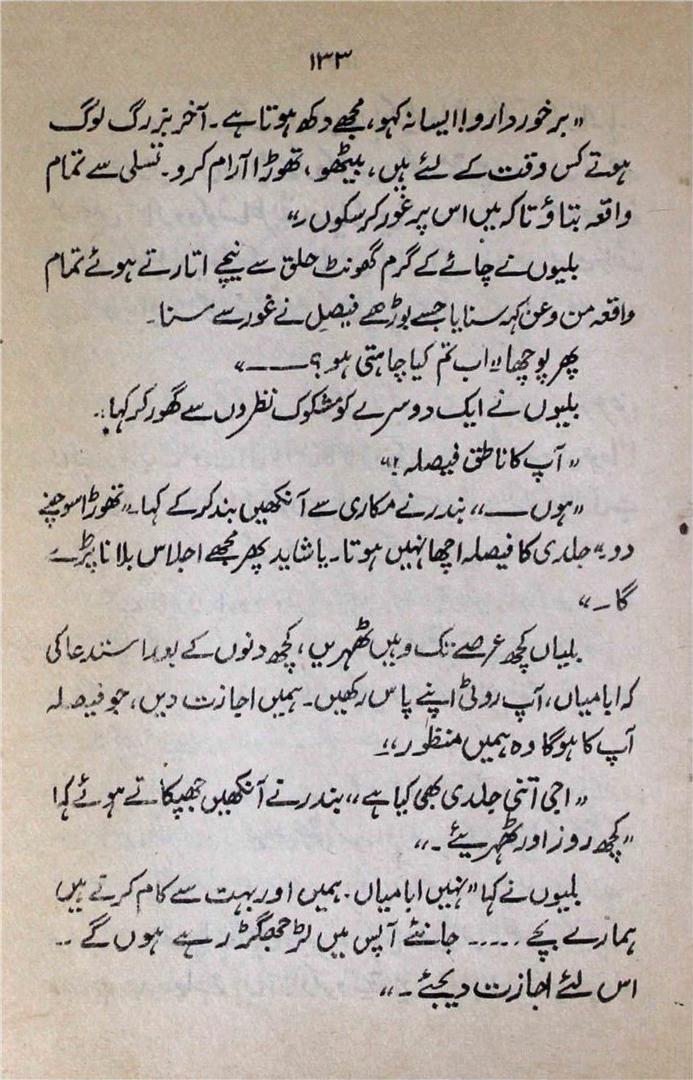 ۱۳۳
"برخوردارو! ایسا نہ کہو، مجھے دکھ ہوتا ہے۔ آخر بزرگ لوگ
ہوتے کس وقت کے لئے ہیں، بیٹھو، تھوڑا آرام کرو۔ تسلی سے تمام
واقعہ بتاؤ تاکہ میں اس پر غور کر سکوں۔"
بلیوں نے چائے کے گرم گھونٹ حلق سے نیچے اتارتے ہوئے تمام
واقعہ من وعن کہہ سنایا جسے بوڑھے فیصل نے غور سے سنا۔
پھر پوچھا "اب تم کیا چاہتی ہو؟ ——"
بلیوں نے ایک دوسرے کو مشکوک نظروں سے گھور کر کہا۔
"آپ کا ناطق فیصلہ!"
"ہوں ——" بندر نے مکاری سے آنکھیں بند کر کے کہا۔ "تھوڑا سوچنے
دو" جلدی کا فیصلہ اچھا نہیں ہوتا۔ یا شاید پھر مجھے اجلاس بلانا پڑے
گا۔"
بلیاں کچھ عرصے تک وہیں ٹھہریں، کچھ دنوں کے بعد استدعا کی
کہ ابا میاں، آپ روٹی اپنے پاس رکھیں۔ ہمیں اجازت دیں، جو فیصلہ
آپ کا ہوگا وہ ہمیں منظور"
"اجی اتنی جلدی بھی کیا ہے" بندر نے آنکھیں جھپکاتے ہوئے کہا
"کچھ روز اور ٹھہریئے۔"
بلیوں نے کہا "نہیں ابا میاں۔ ہمیں اور بہت سے کام کرتے ہیں
ہمارے بچے ..... جانئے آپس میں لڑ جھگڑ رہے ہوں گے ..
اس لئے اجازت دیجئے۔"